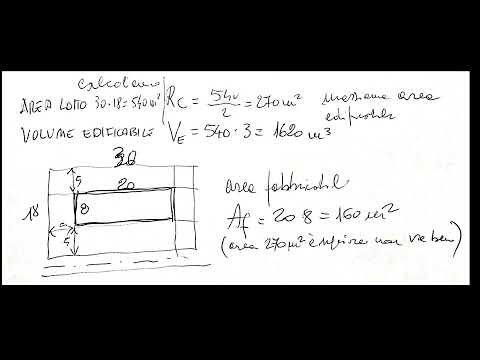 calcoliamo
AREA LOTTO 30·18=540m²
R_C = 540/2 = 270m² massima area edificabile
VOLUME EDIFICABILE V_E = 540·3 = 1620m³
30
5
20
18
8
5
5
area fabbricabile
A_f = 20·8 = 160m²
(area 270m² è non va bene)